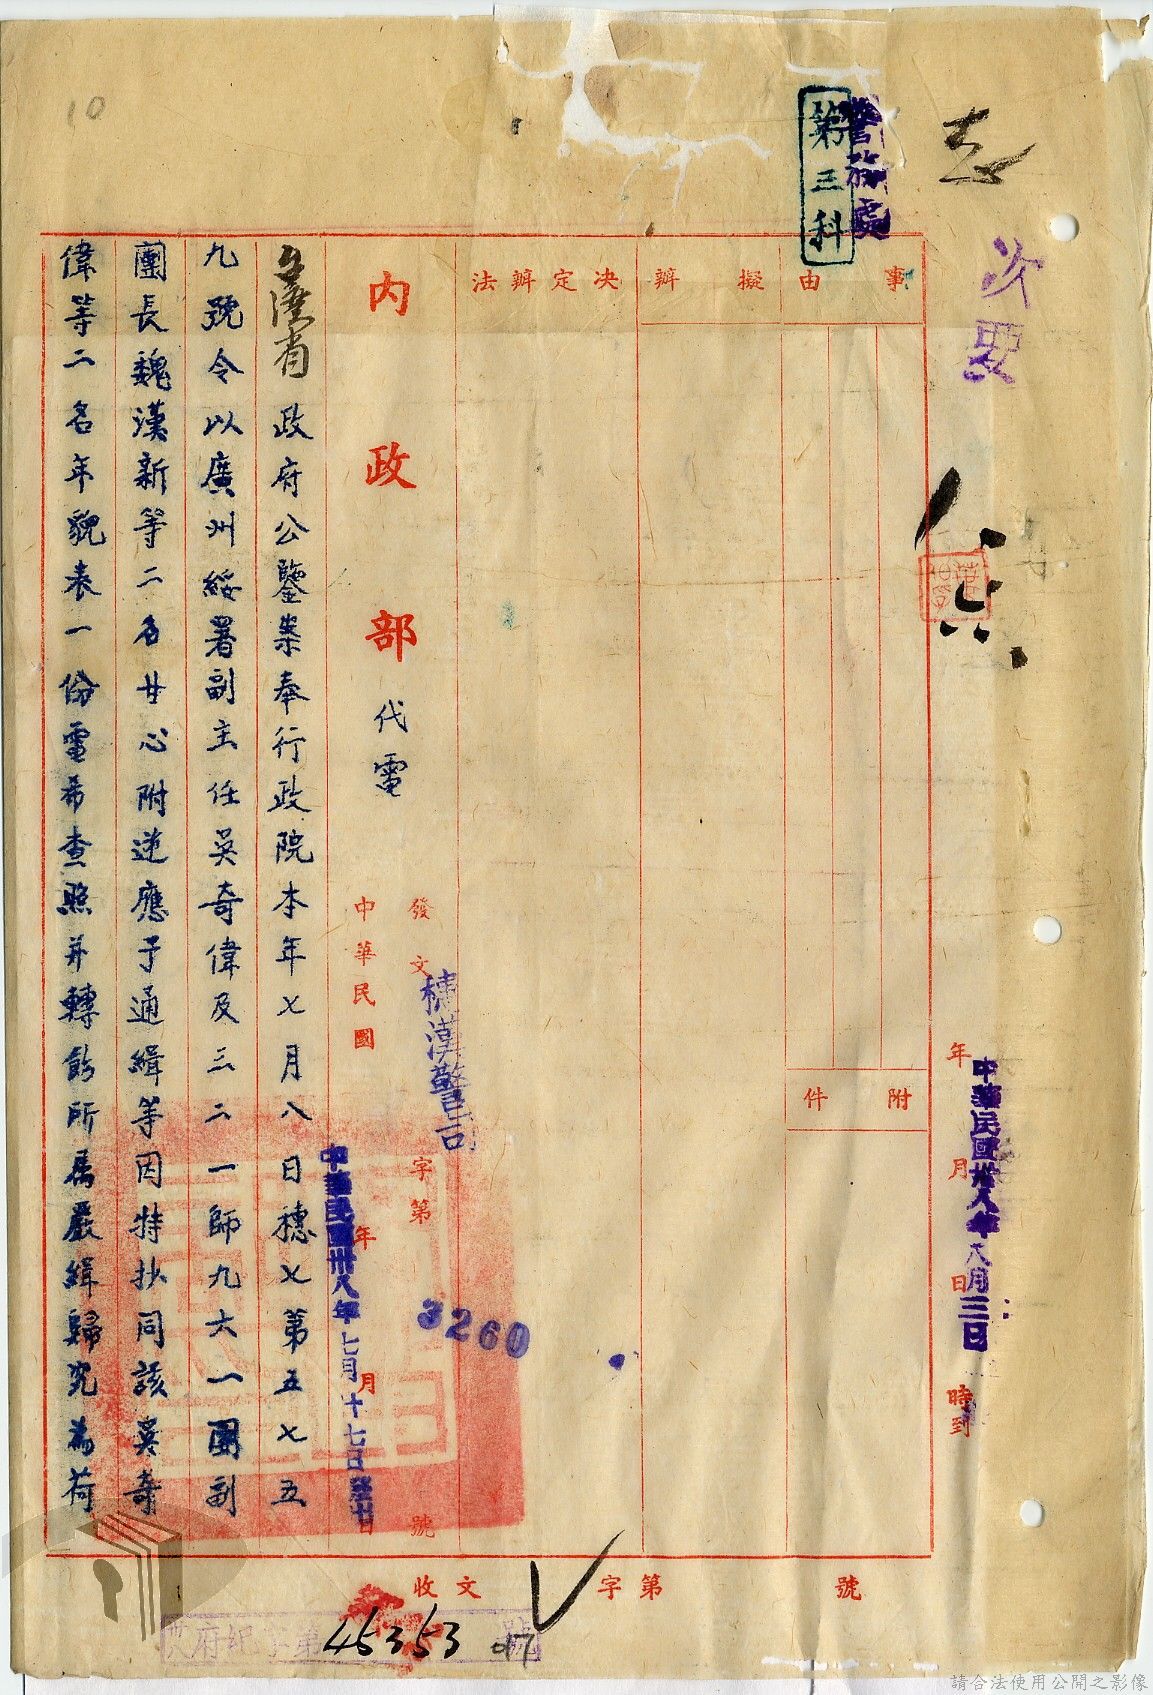 10
警務處
第三科
次要
事由
擬辦
決定辦法
附件
年月日時到
中華民國卅八年八月三日
內政部代電
發文字第號
警
3260
中華民國年月日
中華民國卅八年七月十七日
臺灣省政府公鑒案奉行政院本年七月八日穗七第五七五
九號令以廣州綏署副主任吳奇偉及三二一師九六一團副
團長魏漢新等二名甘心附逆應予通緝等因特抄同該吳奇
偉等二名年貌表一份電希查照并轉飭所屬嚴緝歸究為荷
收文字第號
府紀字第45353號
請合法使用公開之影像